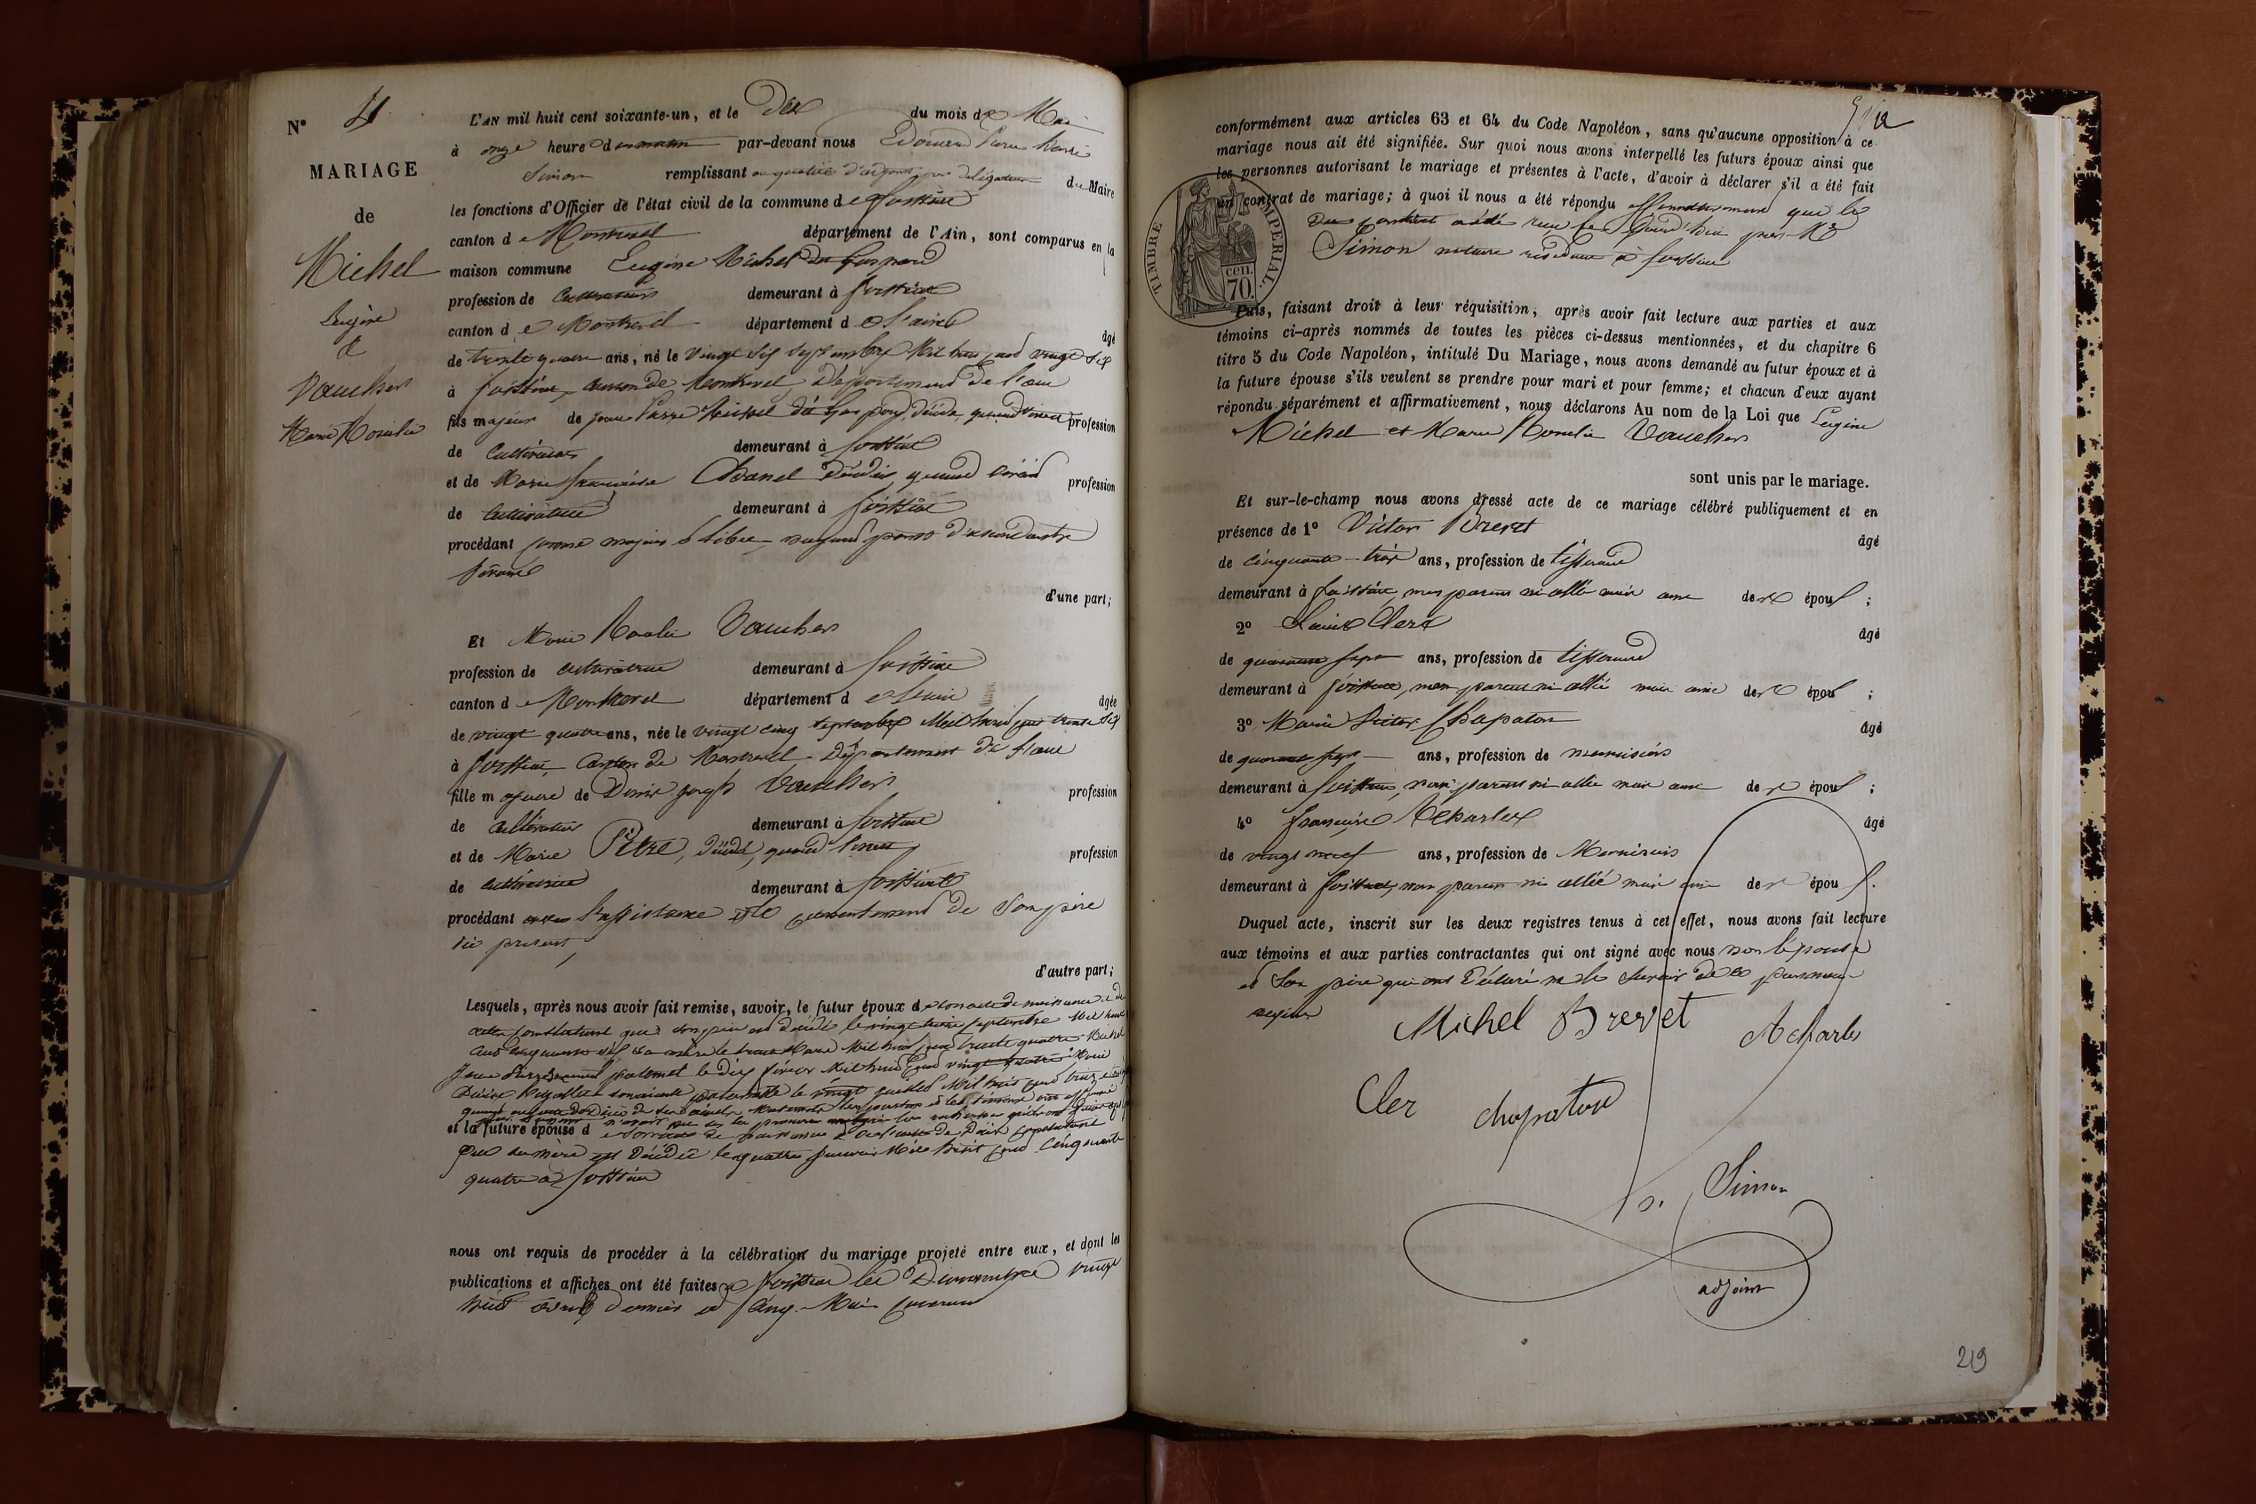 N° 4
MARIAGE
de
Michel
Eugène
&
Vaucher
Marie Rosalie
L'AN mil huit cent soixante-un, et le dix du mois de Mai
à onze heure du matin par-devant nous Edouard Pierre Marie
Simon remplissant en qualité d'adjoint par délégation du Maire
les fonctions d'Officier de l'état civil de la commune de foissiat
canton de Montrevel département de l'Ain, sont comparus en la
maison commune Eugène Michel
profession de cultivateur demeurant à foissiat
canton de Montrevel département de l'ain âgé
de trente quatre ans, né le vingt six septembre Mil huit cent vingt six
à foissiat, canton de Montrevel, Département de l'ain
fils majeur de Jean Pierre Michel décédé, quand vivait profession
de cultivateur demeurant à foissiat
et de Marie françoise Chanel décédée, quand vivait profession
de cultivatrice demeurant à foissiat
procédant comme majeur & libre
d'une part;
Et Marie Rosalie Vaucher
profession de cultivatrice demeurant à foissiat
canton de Montrevel département de l'ain âgée
de vingt quatre ans, née le vingt cinq septembre Mil huit cent trente six
à foissiat, Canton de Montrevel, Département de l'ain
fille majeure de Denis joseph Vaucher profession
de cultivateur demeurant à foissiat
et de Marie Pitre, décédée, quand vivait profession
de cultivatrice demeurant à foissiat
procédant avec l'assistance et le consentement de Son père
ici présent,
d'autre part;
Lesquels, après nous avoir fait remise, savoir, le futur époux de son acte de naissance & de
celle constatant que son père est décédé le vingt trois septembre Mil huit
cent cinquante six sa mère le trois Mars Mil huit cent trente quatre Michel
paternel le dix février Mil huit cent vingt quatre Marie
paternelle le vingt juillet Mil huit cent
et la future épouse de son acte de naissance & de l'acte de Décès constatant
que sa mère est décédée le quatre janvier Mil huit cent cinquante
quatre à foissiat
nous ont requis de procéder à la célébration du mariage projeté entre eux, et dont les
publications et affiches ont été faites à foissiat les Dimanches vingt
huit avril dernier et cinq Mai courant
conformément aux articles 63 et 64 du Code Napoléon, sans qu'aucune opposition à ce
mariage nous ait été signifiée. Sur quoi nous avons interpellé les futurs époux ainsi que
les personnes autorisant le mariage et présentes à l'acte, d'avoir à déclarer s'il a été fait
un contrat de mariage; à quoi il nous a été répondu affirmativement que le
dit contrat a été reçu ce jourd'hui par Me
Simon notaire résidant à foissiat
TIMBRE IMPERIAL.
cen.
70.
Puis, faisant droit à leur réquisition, après avoir fait lecture aux parties et aux
témoins ci-après nommés de toutes les pièces ci-dessus mentionnées, et du chapitre 6
titre 5 du Code Napoléon, intitulé Du Mariage, nous avons demandé au futur époux et à
la future épouse s'ils veulent se prendre pour mari et pour femme; et chacun d'eux ayant
répondu séparément et affirmativement, nous déclarons Au nom de la Loi que Eugène
Michel et Marie Rosalie Vaucher
sont unis par le mariage.
Et sur-le-champ nous avons dressé acte de ce mariage célébré publiquement et en
présence de 1° Victor Brevet âgé
de cinquante-trois ans, profession de tisserand
demeurant à foissiat, non parent ni allié mais ami des époux;
2° Louis Clerc âgé
de quarante sept ans, profession de tisserand
demeurant à foissiat, non parent ni allié mais ami des époux;
3° Marie Victor Chapaton âgé
de quarante sept ans, profession de menuisier
demeurant à foissiat, non parent ni allié mais ami des époux;
4° françois Acharles âgé
de vingt neuf ans, profession de Menuisier
demeurant à foissiat, non parent ni allié mais ami des époux.
Duquel acte, inscrit sur les deux registres tenus à cet effet, nous avons fait lecture
aux témoins et aux parties contractantes qui ont signé avec nous non l'épouse
et Son père qui ont déclaré ne le savoir de ce
requis
Michel Brevet Acharles
Cler chapaton
Simon
adjoint
219